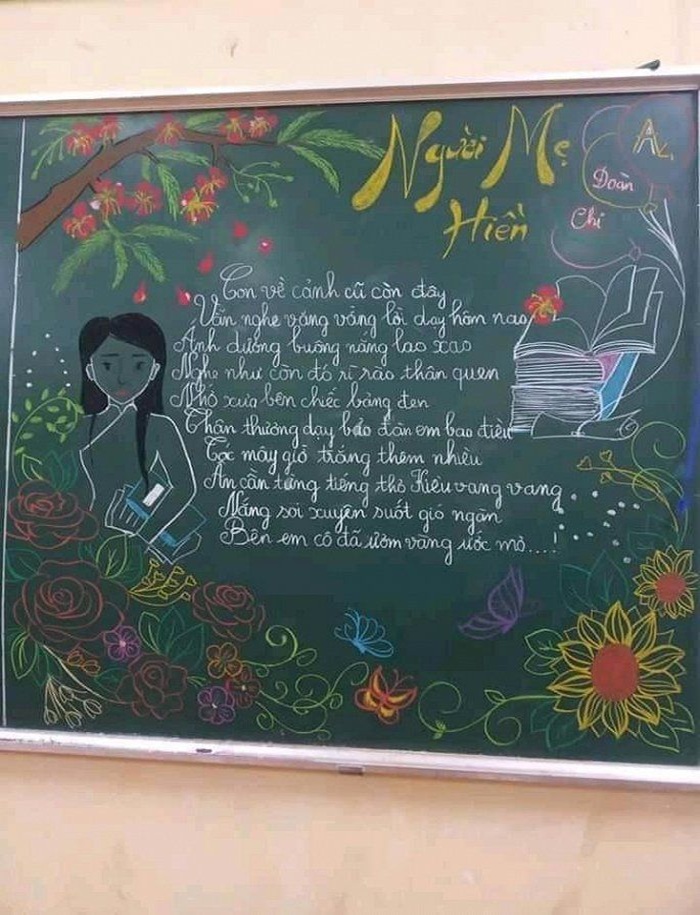 Người Mẹ
Hiền
A2
Đoàn
Chi
Con về cảnh cũ còn đây
Vẫn nghe văng vẳng lời dạy hôm nao
Ánh dương buông nắng lao xao
Nghe như còn đó rì rào thân quen
Nhớ xưa bên chiếc bảng đen
Thân thương dạy bảo đàn em bao điều
Tóc mây giờ trắng thêm nhiều
Ân cần từng tiếng thơ Kiều vang vang
Nắng soi xuyên suốt gió ngàn
Bên em cô đã ươm vàng ước mơ....!